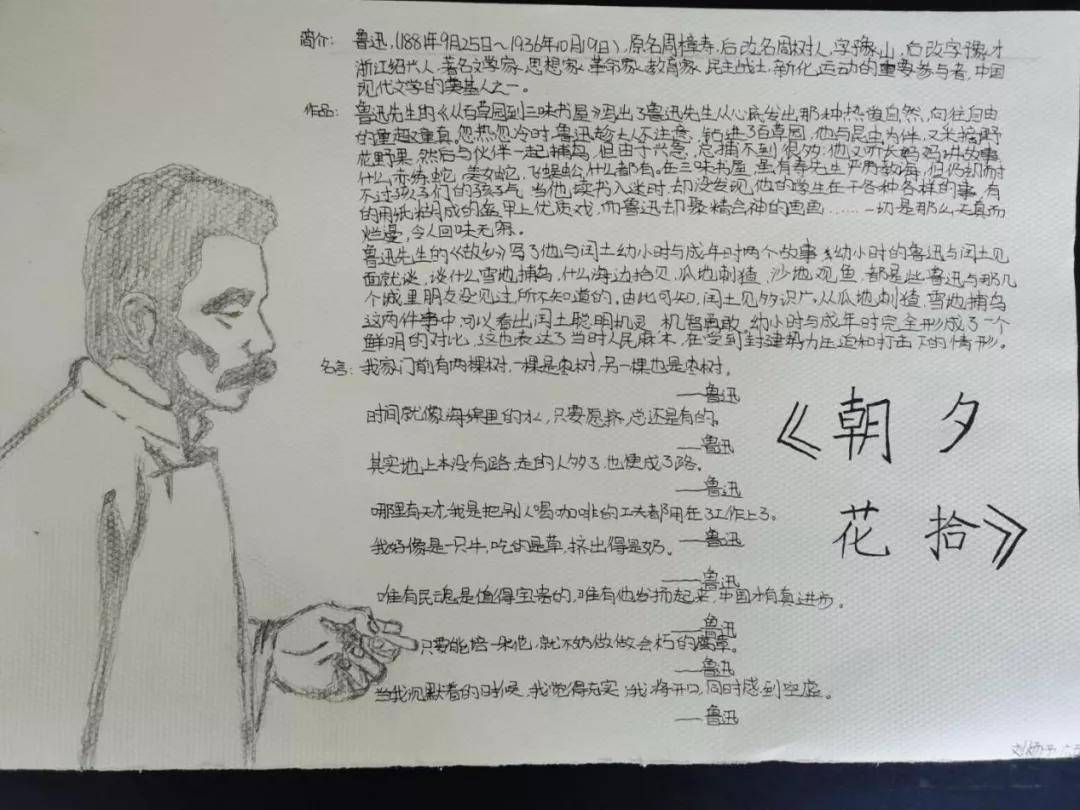 简介: 鲁迅,(1881年9月25日~1936年10月19日),原名周樟寿,后改名周树人,字豫山,后改字豫才
浙江绍兴人,著名文学家、思想家、革命家、教育家、民主战士,新化运动的重要参与者,中国
现代文学的奠基人之一。
作品: 鲁迅先生的《从百草园到三味书屋》写出了鲁迅先生从心底发出那种热爱自然,向往自由
的童趣童真。忽热忽冷时,鲁迅趁大人不注意,钻进了百草园,他与昆虫为伴,又采摘野
花野果,然后与伙伴一起捕鸟,但由于性急,总捕不到很多,他又听长妈妈讲故事,
什么赤练蛇,美女蛇,飞蜈蚣,什么都有。在三味书屋,虽有寿先生严厉教诲,但仍却耐
不过孩子们的孩子气,当他读书入迷时,却没发现,他的学生在干各种各样的事,有
的用纸糊成的盔甲上优质戏,而鲁迅却聚精会神的画画……一切是那么天真而
烂漫,令人回味无穷。
鲁迅先生的《故乡》写了他与闰土幼小时与成年时两个故事,幼小时的鲁迅与闰土见
面就谈,谈什么雪地捕鸟,什么海边拾贝,瓜地刺猹,沙地观鱼,都是些鲁迅与那几
个城里朋友没见过,所不知道的,由此可知,闰土见多识广。从瓜地刺猹,雪地捕鸟
这两件事中,可以看出闰土聪明机灵,机智勇敢。幼小时与成年时完全形成了一个
鲜明的对比,这也表达了当时人民麻木,在受到封建势力压迫和打击下的情形。
名言: 我家门前有两棵树,一棵是枣树,另一棵也是枣树。
——鲁迅
时间就像海绵里的水,只要愿挤,总还是有的。
——鲁迅
其实地上本没有路,走的人多了,也便成了路。
——鲁迅
哪里有天才,我是把别人喝咖啡的工夫都用在了工作上了。
——鲁迅
我好像是一只牛,吃的是草,挤出得是奶。
——鲁迅
唯有民魂是值得宝贵的,唯有他发扬起来,中国才有真进步。
——鲁迅
只要能培一朵花,就不妨做做会朽的腐草。
——鲁迅
当我沉默着的时候,我觉得充实,我将开口,同时感到空虚。
——鲁迅
《朝夕
花拾》